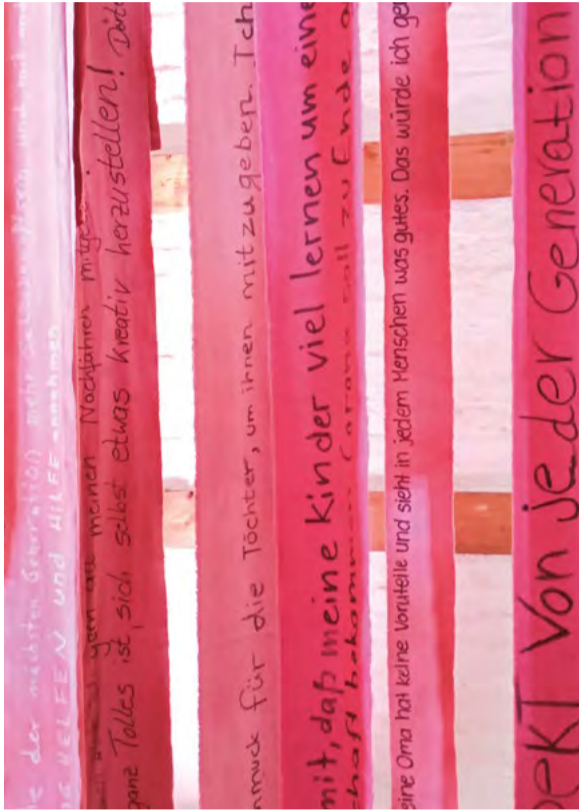 der nächsten Generation mehr
HELFEN und HILFE annehmen
gern an meinen Nachfahren
ganz Tolles ist, sich selbst etwas kreativ herzustellen!
für die Töchter, um ihnen mitzugeben. Ich
mit, daß meine Kinder viel lernen um eine
Corona soll zu Ende
eine Oma hat keine Vorurteile und sieht in jedem Menschen was gutes. Das würde ich ge
pekt Von jeder Generation